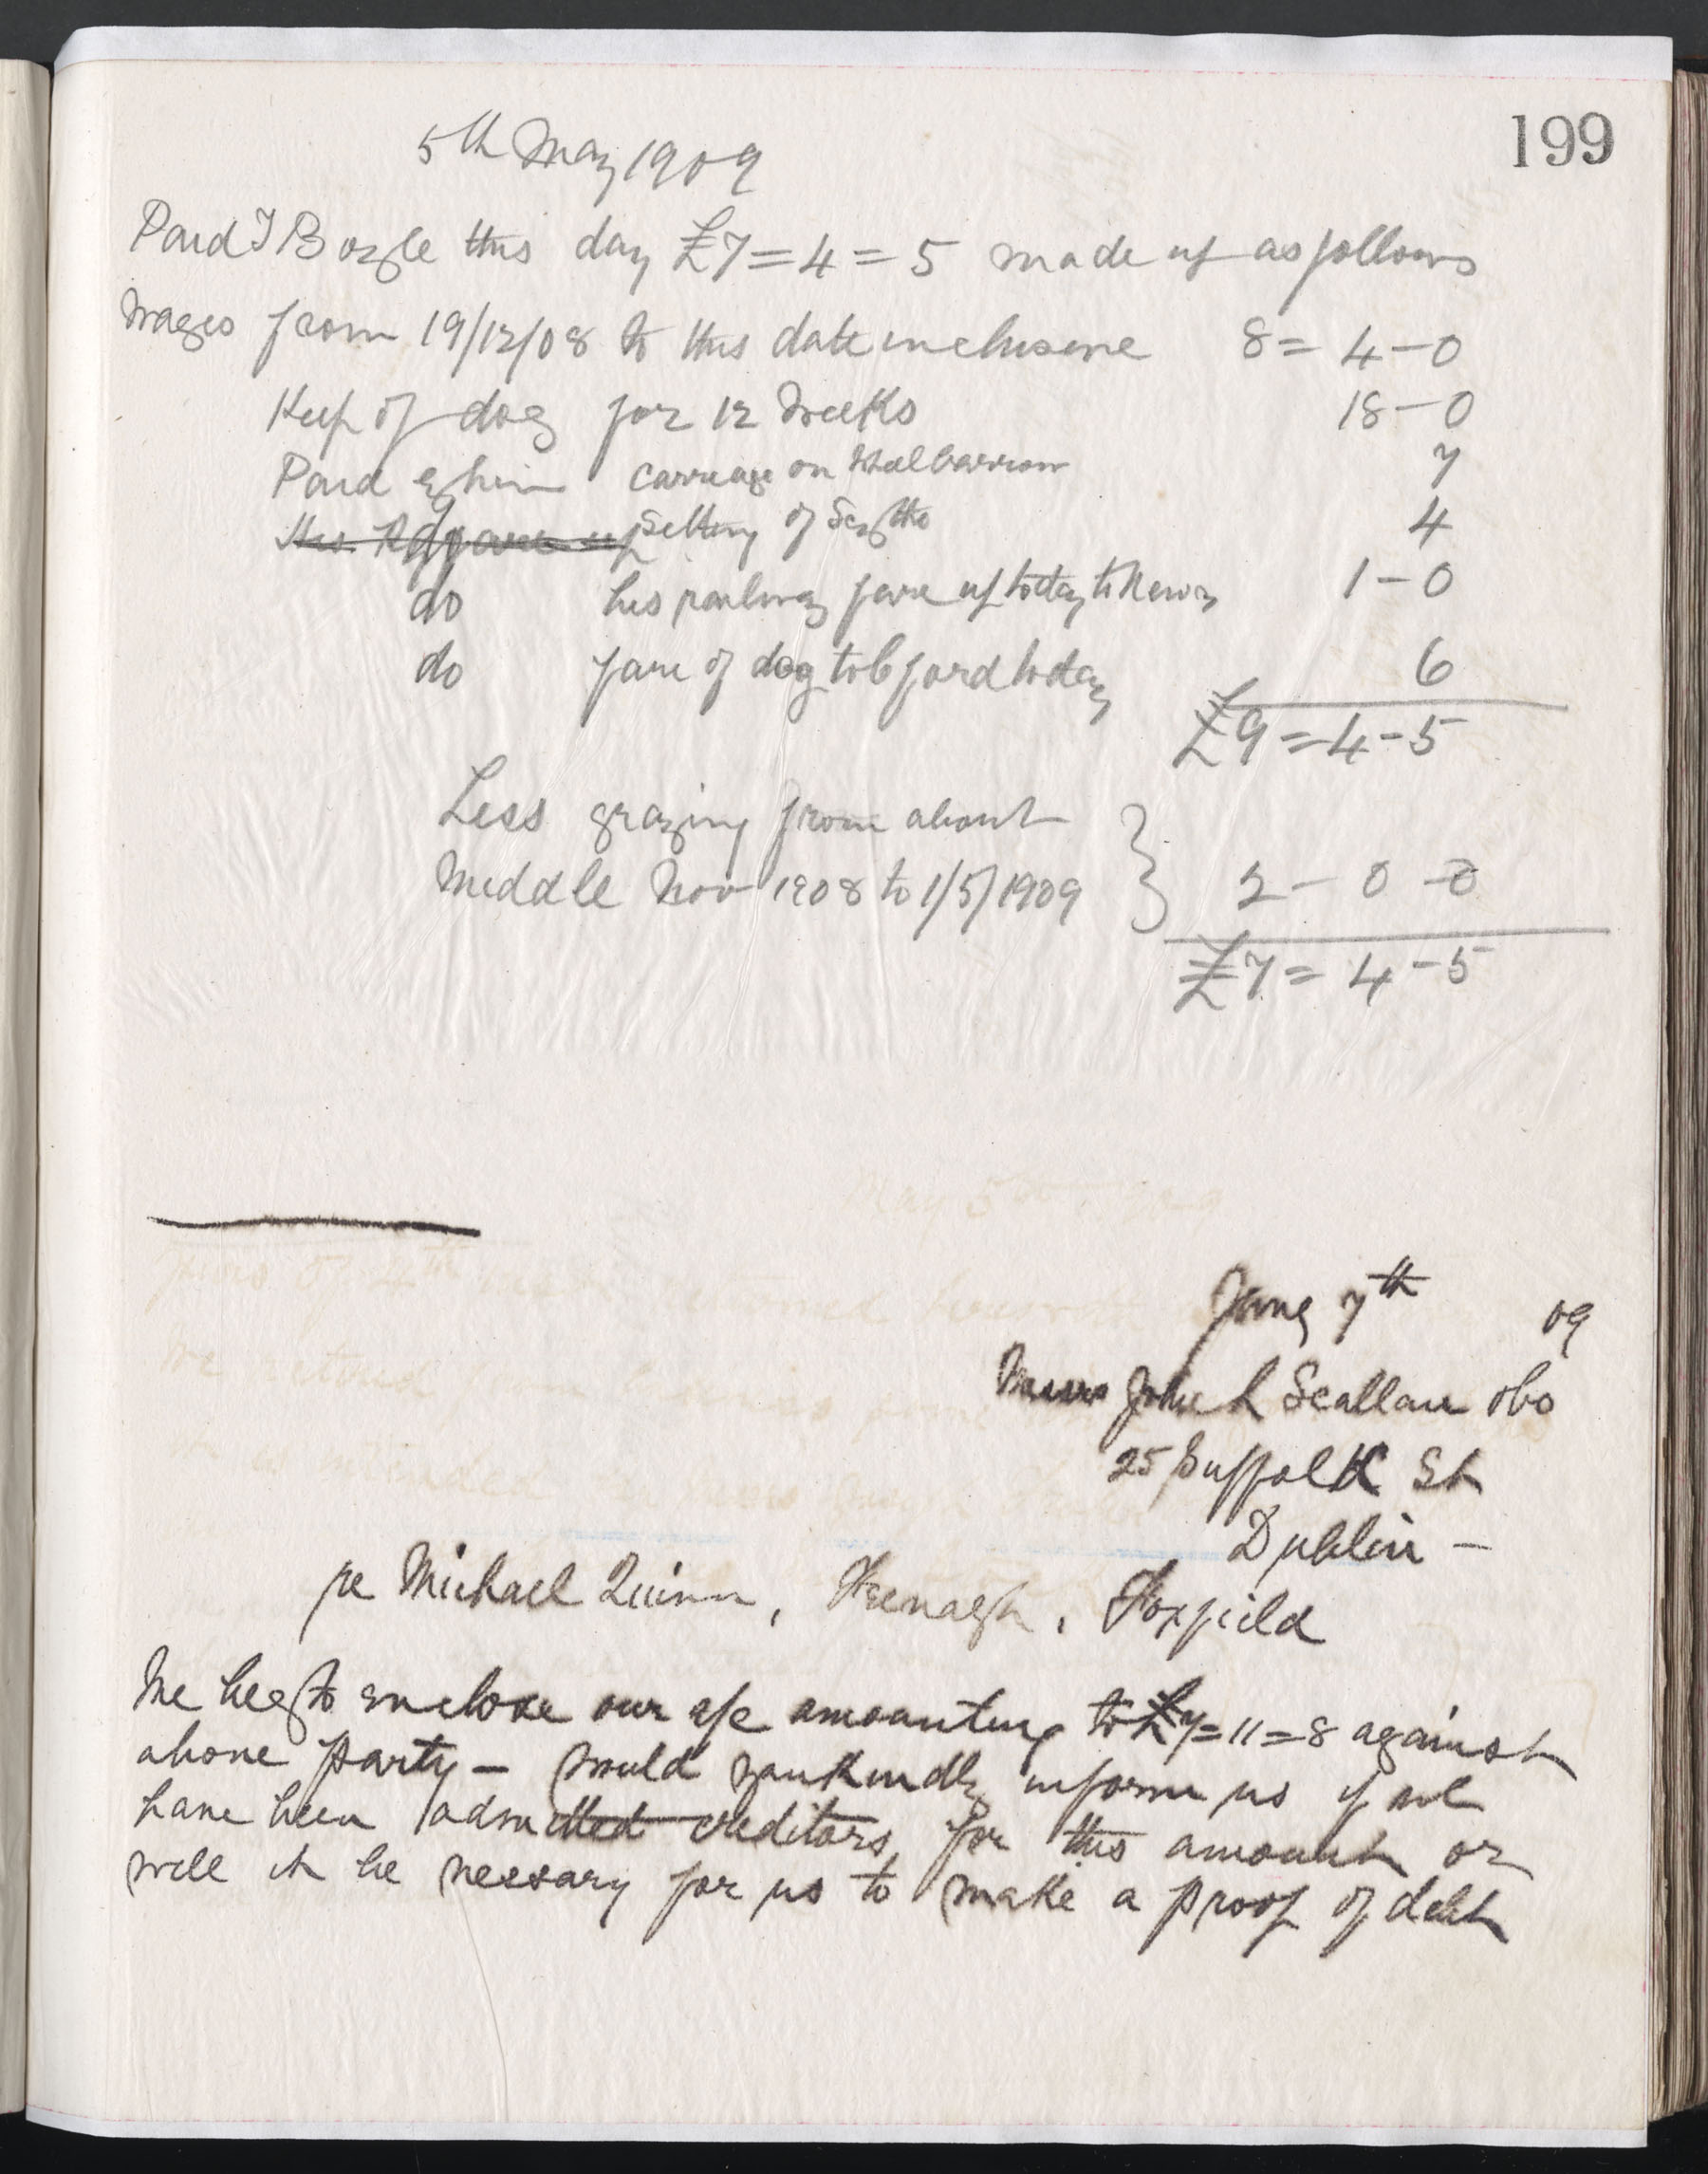 199
5th May 1909
Paid T Boyle this day £7=4=5 made up as follows
Wages from 19/12/08 to this date inclusive 8=4-0
Keep of dog for 12 weeks 18-0
Paid by him carriage on Wheelbarrow 7
Setting of Scythe 4
do his railway fare up today to 1-0
do fare of dog to today 6
£9=4-5
Less grazing from about
Middle Nov 1908 to 1/5/1909 } 2-0-0
£7=4-5
May 5th
Jany 7th 09
Messrs John L Scallan &Co
25 Suffolk St
Dublin -
re Michael Quinn, Feenagh, Foxfield
We beg to enclose our a/c amounting to £7=11=8 against
above party - Would you kindly inform us if we
have been admitted creditors for this amount or
will it be nessary for us to make a proof of debt